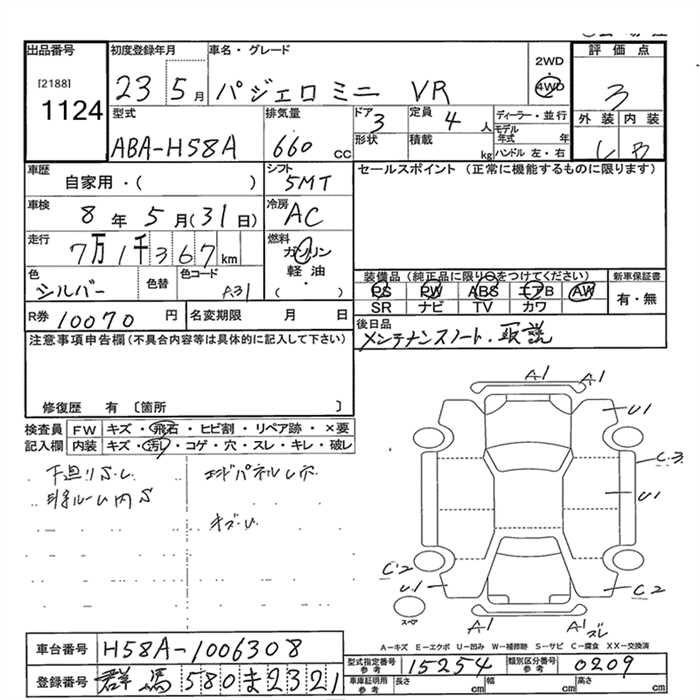 出品番号
[2188]
1124
初度登録年月
23 5月
車名・グレード
パジェロミニ VR
2WD
4WD
評価点
3
型式
ABA-H58A
排気量
660 cc
ドア 3
形状
定員
4 人
積載
kg
ディーラー・並行
モデル年式 年
ハンドル 左・右
外装
内装
B
車歴
自家用・( )
シフト
5MT
車検
8年 5月(31日)
冷房
AC
走行
7万1千367km
燃料
ガソリン
軽油
( )
色
シルバー
色替
色コード
A31
R券 10070 円
名変期限 月 日
セールスポイント(正常に機能するものに限ります)
装備品(純正品に限り○をつけてください)
PS PW ABS エアB AW
SR ナビ TV カワ
新車保証書
有・無
後日品
メンテナンスノート・取説
注意事項申告欄(不具合内容等は具体的に記入して下さい)
修復歴 有 〔箇所 〕
検査員記入欄
FW キズ・飛石・ヒビ割・リペア跡・×要
内装 キズ・汚れ・コゲ・穴・スレ・キレ・破レ
下廻りS.
エンドパネル 穴
ルーム内S
キズ.U
A1 A1
U1
C.3
U1
C.2
U1
C2
スペア
A1
A1 ズレ
A-キズ E-エクボ U-凹み W-補修跡 S-サビ C-腐食 XX-交換済
車台番号 H58A-1006308
登録番号 群馬 580 ま 2321
型式指定番号 参考 15254
類別区分番号 参考 0209
車庫証明用 参考
長さ cm
幅 cm
高さ cm